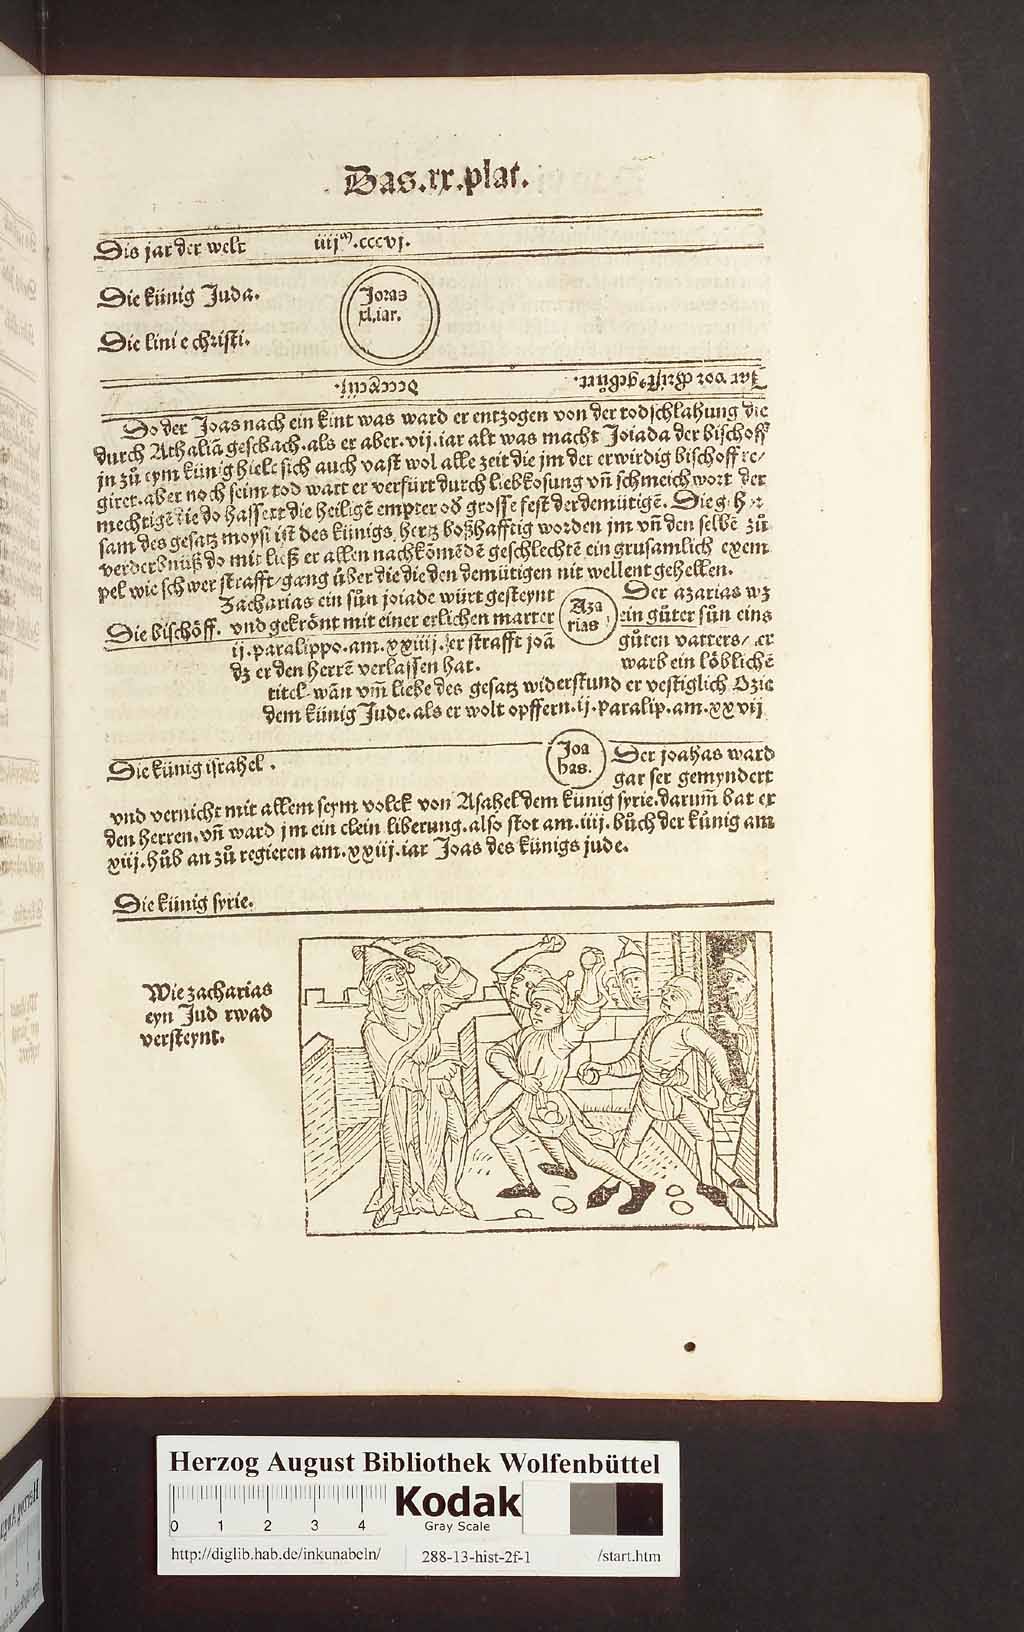 Das.xx.plat.
Dis jar der welt iiijᵐ.cccvj.
Die künig Juda.
Joras
xl.iar.
Die lini e christi.
Jar vor Crist⁹ gebürt.
So der Joas nach ein kint was ward er entzogen von der todschlahung die
durch Athaliā geschach.als er aber.vij.iar alt was macht Joiada der bischoff
jn zů eym künig hielt sich auch vast wol alle zeit die jm der erwirdig bischoff re/
giret.aber noch seim tod wart er verfürt durch liebkosung vñ schmeich wort der
mechtigē die do hassett die heiligē empter od grosse fest der demütigē. Die
sam des gesatz moysi ist des künigs hertz boßhafftig worden jm vñ den selbē zů
verderbnüß do mit ließ er allen nachkōmēdē geschlechtē ein grusamlich exem
pel wie schwer strafft/gang über die die den demütigen nit wellent gehellen.
Die bischöff.
Zacharias ein sůn joiade würt gesteynt
vnd gekrönt mit einer erlichen marter
ij.paralippo.am.xxiiij.der strafft joā
dz er den herrē verlassen hat.
Aza
rias
Der azarias wz
ein gůter sůn eins
gůten vatters/.er
warb ein löblichē
titel wān vm̄ liebe des gesatz widerstund er vestiglich Ozie
dem künig Jude.als er wolt opffern.ij.paralip.am.xxvij
Die künig israhel.
Joa
has.
Der joahas ward
gar ser gemyndert
vnd vernicht mit allem seym volck von Asahel dem künig syrie.darum̄ bat er
den herren.vñ ward jm ein clein liberung.also stot am.iiij.bůch der künig am
xiij.hůb an zů regieren am.xxiij.iar Joas des künigs jude.
Die künig syrie.
Wie zacharias
eyn Jud rwad
versteynt.
Herzog August Bibliothek Wolfenbüttel
0 1 2 3 4
Kodak
Gray Scale
http://diglib.hab.de/inkunabeln/ 288-13-hist-2f-1 /start.htm